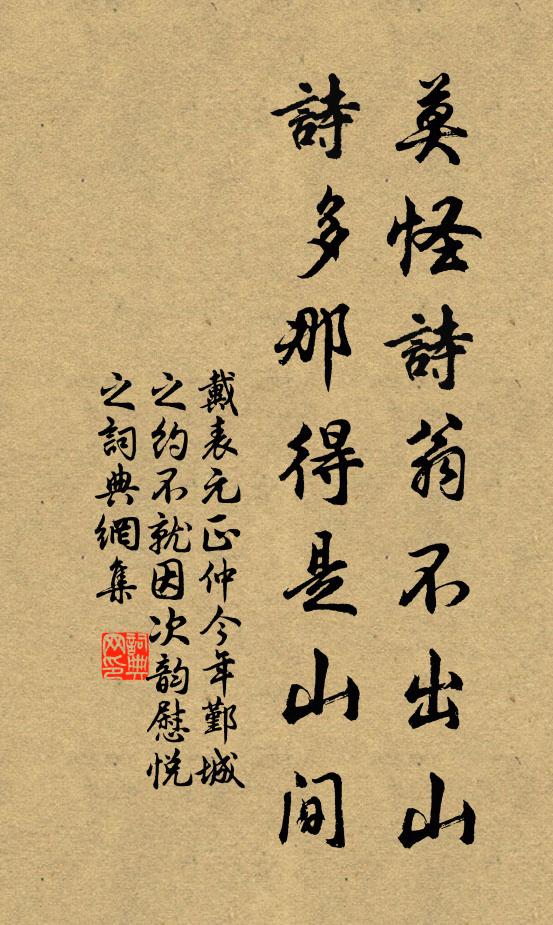 莫怪詩翁不出山
詩多那得是山間
戴表元正仲今年鄞城
之約不就因次韵慰悦
之詞典網集
詞典网印